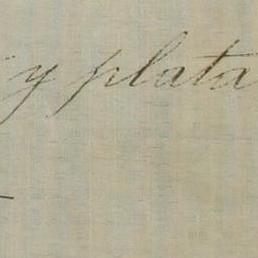 y plata